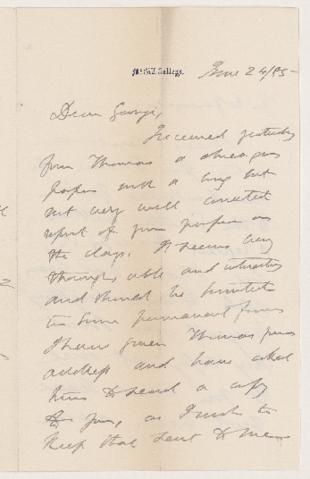 McGill College.
June 24/95
Dear George,
I received yesterday
from Thomas a Chicago
paper with a long but
not very well corrected
report of your paper on
the clays. It seems very
thorough, able and interesting
and should be printed
in some permanent form
I have given Thomas your
address and have asked
him to send a copy
to you, as I wish to
keep that sent to me